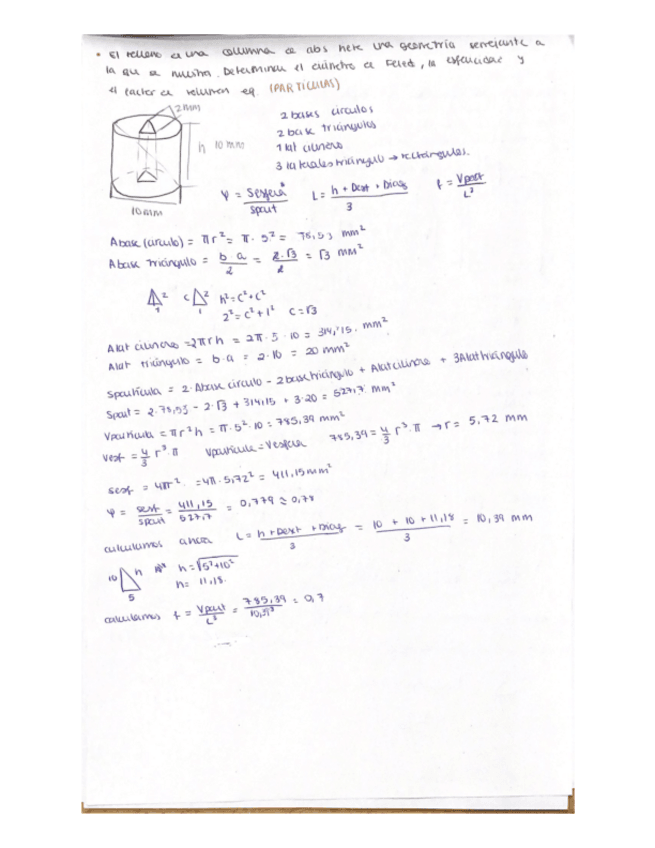 • El relleno de una columna de abs tiene una geometría semejante a
la que se muestra. Determinar el diámetro de Feret, la esfericidad y
el factor de volumen eq. (PARTÍCULAS)
2mm
h 10 mm
10mm
2 bases círculos
2 base triángulos
1 lat cilindro
3 laterales triángulo → rectángulos.
Ψ = Sesfera / Spart
L = h + Dext + Diag / 3
f = Vpart / L³
A base (círculo) = πr² = π · 5² = 78,53 mm²
A base triángulo = b·a / 2 = 2·√3 / 2 = √3 mm²
2
1
c
2
1
h² = c² + c²
2² = c² + 1² c = √3
A lat cilindro = 2πrh = 2π · 5 · 10 = 314,15 mm²
A lat triángulo = b·a = 2·10 = 20 mm²
Spartícula = 2·Abase círculo - 2 base triángulo + Alat cilindro + 3Alat triángulo
Spart = 2·78,53 - 2·√3 + 314,15 + 3·20 = 527,7 mm²
Vpartícula = πr²h = π·5²·10 = 785,39 mm²
Vesf = 4/3 r³·π Vpartícula = Vesfera 785,39 = 4/3 r³·π → r = 5,72 mm
Sesf = 4πr² = 4π·5,72² = 411,15 mm²
Ψ = Sesf / Spart = 411,15 / 527,7 = 0,779 ≈ 0,78
calculamos ahora L = h + Dext + Diag / 3 = 10 + 10 + 11,18 / 3 = 10,39 mm
10
h
5
h = √5²+10²
h = 11,18.
calculamos f = Vpart / L³ = 785,39 / 10,39³ = 0,7